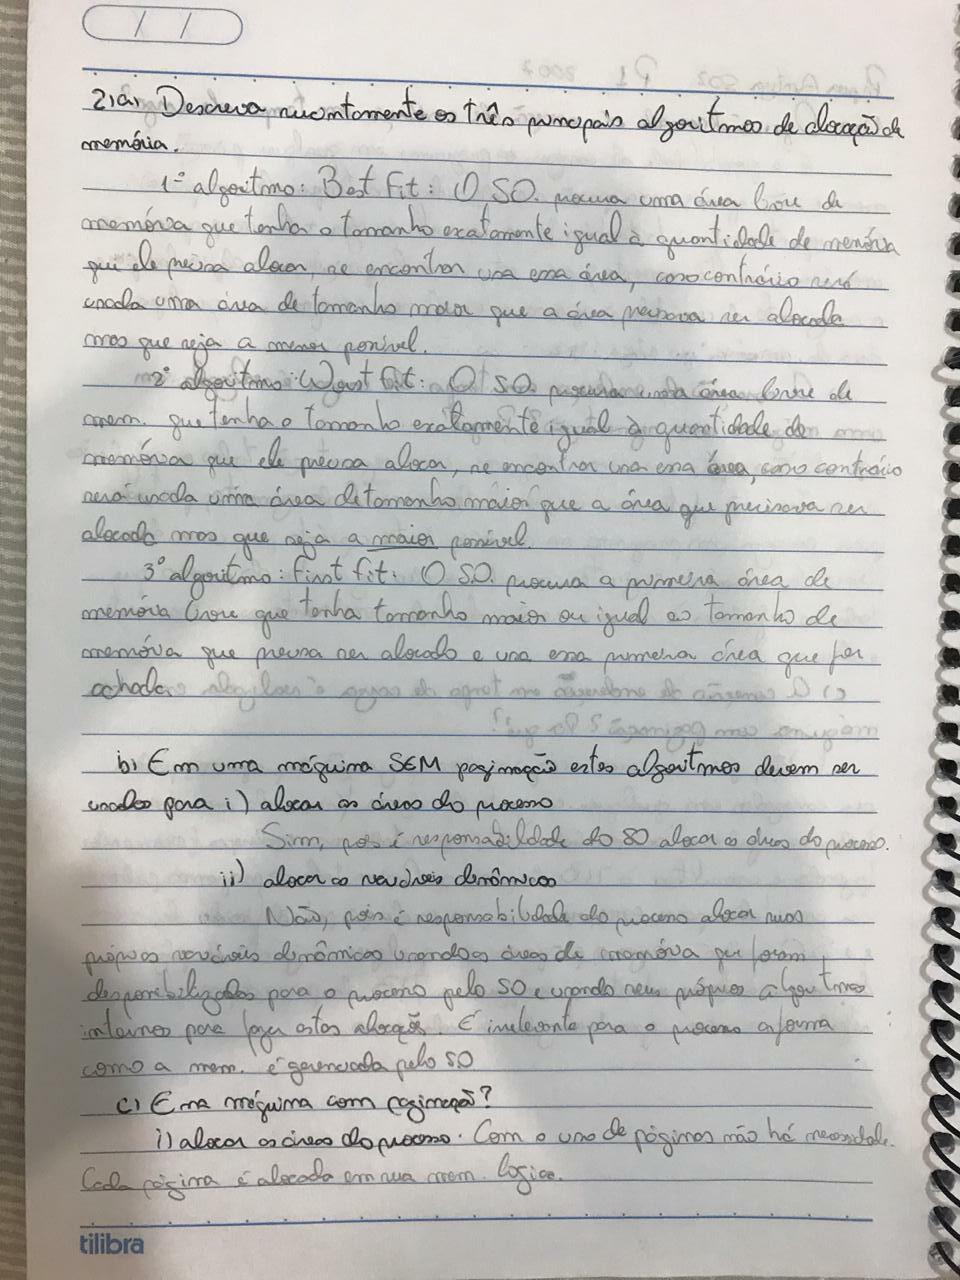 2)a) Descreva sucintamente os três principais algoritmos de alocação de
memória.
1º algoritmo: Best Fit: O SO. procura uma área livre de
memória que tenha o tamanho exatamente igual à quantidade de memória
que ele precisa alocar, se encontrar usa essa área, caso contrário será
usada uma área de tamanho maior que a área precisava ser alocada
mas que seja a menor possível.
2º algoritmo: Worst fit: O SO. procura uma área livre de
mem. que tenha o tamanho exatamente igual à quantidade de
memória que ele precisa alocar, se encontrar usa essa área, caso contrário
será usada uma área de tamanho maior que a área que precisava ser
alocada mas que seja a maior possível.
3º algoritmo: First fit: O S.O. procura a primeira área de
memória livre que tenha tamanho maior ou igual ao tamanho de
memória que precisa ser alocado e usa essa primeira área que for
achada.
b) Em uma máquina SEM paginação estes algoritmos devem ser
usados para i) alocar as áreas do processo
Sim, pois é responsabilidade do SO alocar as áreas do processo.
ii) alocar as variáveis dinâmicas
Não, pois é responsabilidade do processo alocar suas
próprias variáveis dinâmicas usando as áreas de memória que foram
disponibilizadas para o processo pelo SO e usando seus próprios algoritmos
internos para fazer estas alocações. É irrelevante para o processo a forma
como a mem. é gerenciada pelo SO
c) E na máquina com paginação?
i) alocar as áreas do processo. Com o uso de páginas não há necessidade.
Cada página é alocada em sua mem. logica.
tilibra